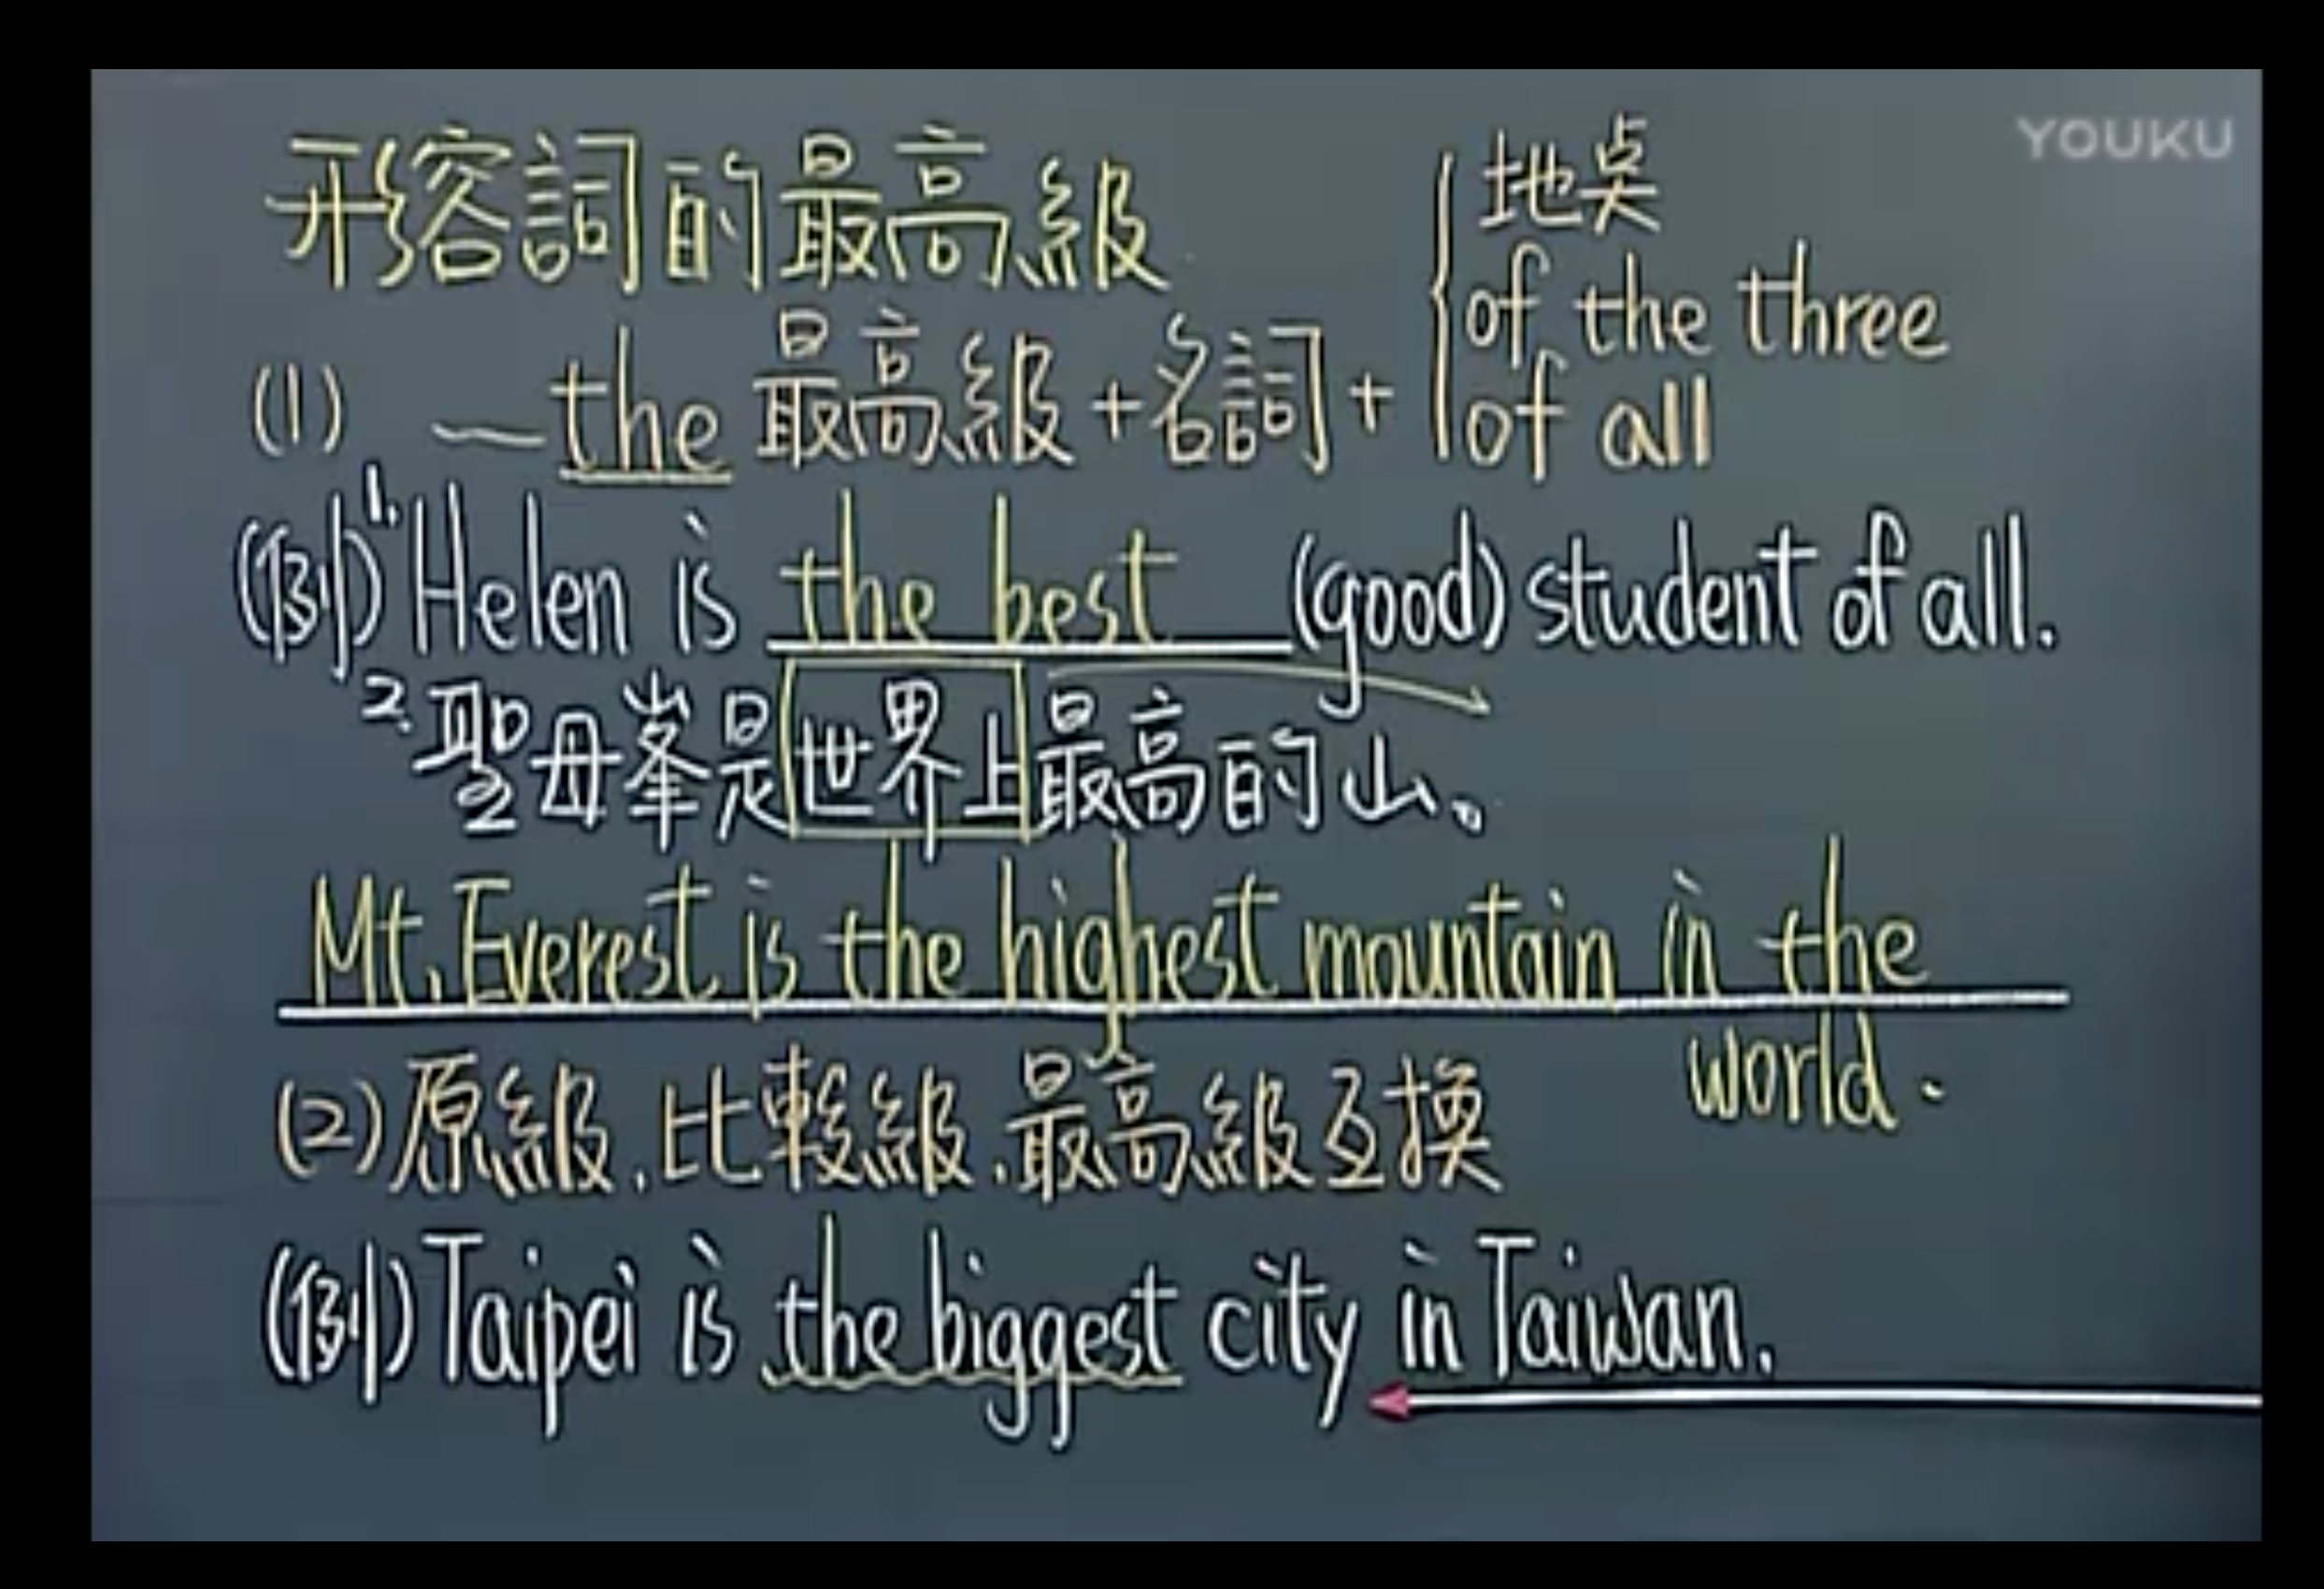 YOUKU
形容詞的最高級
地桌
of the three
of all
(1) ～the 最高級+名詞+
(例) 1. Helen is the best (good) student of all.
2. 聖母峯是世界上最高的山。
Mt. Everest is the highest mountain in the
world.
(2) 原級.比較級.最高級互換
(例) Taipei is the biggest city in Taiwan.